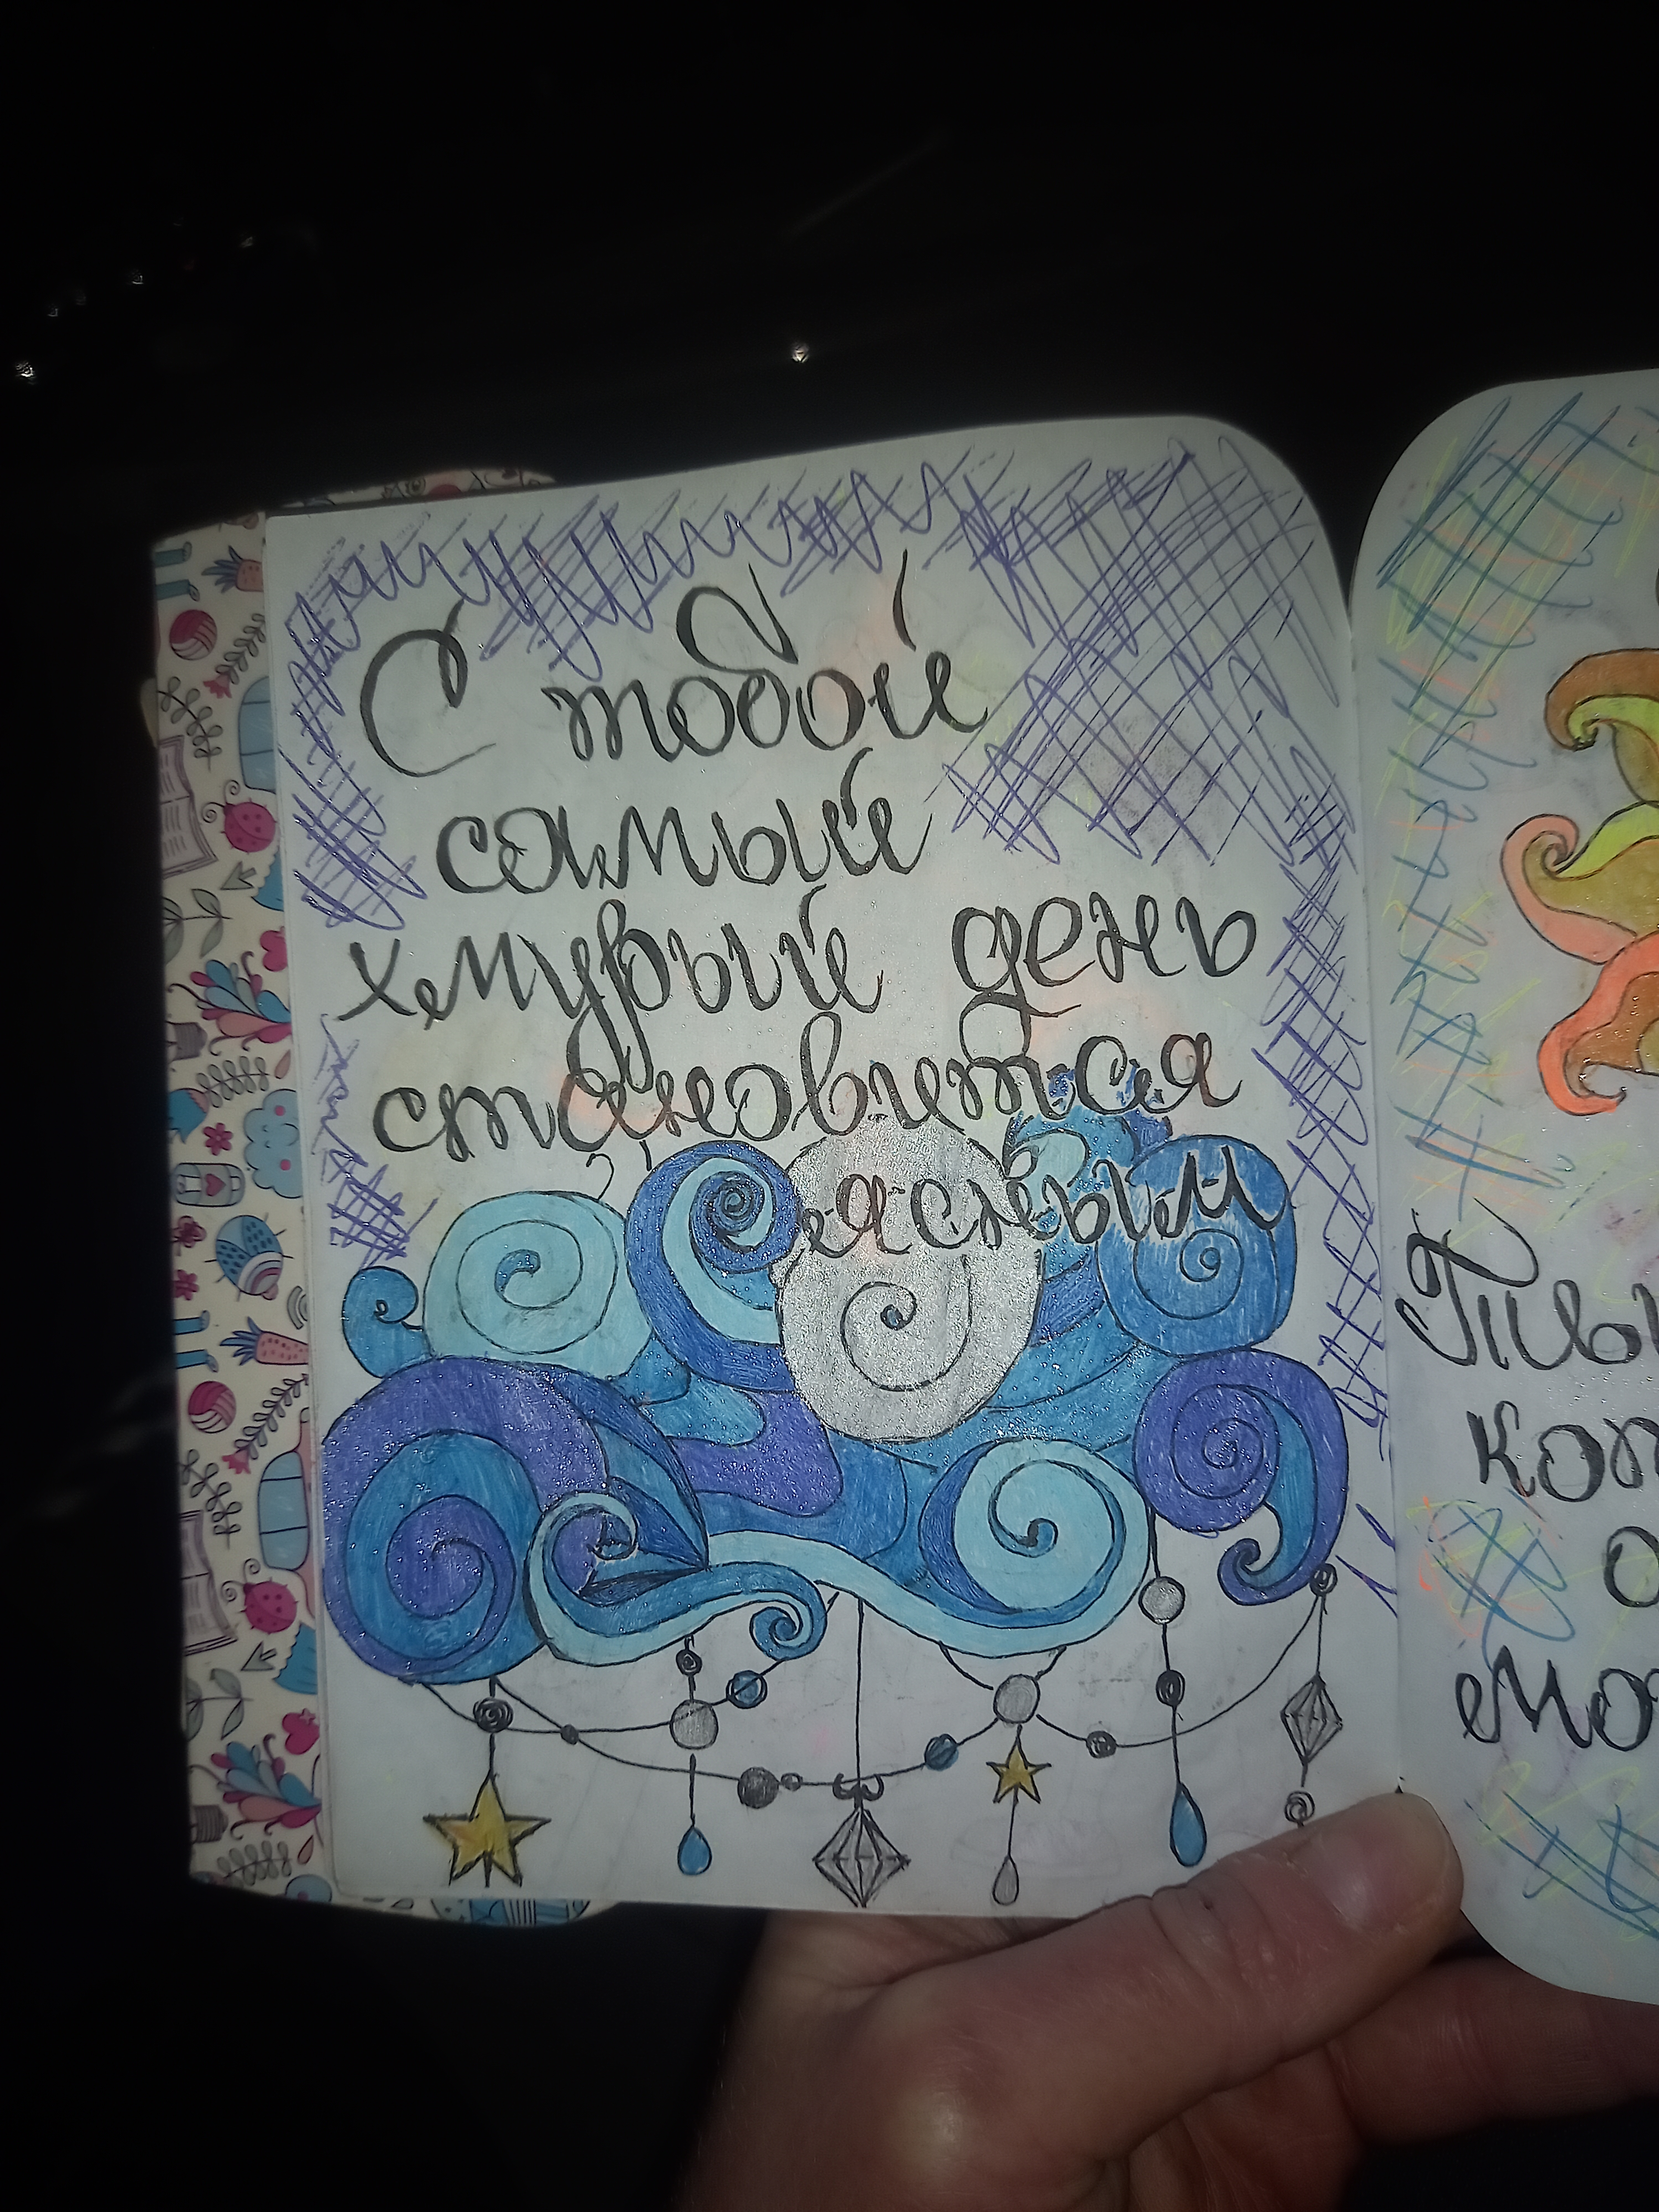 С тобой
самый
хмурый день
становится
ясным